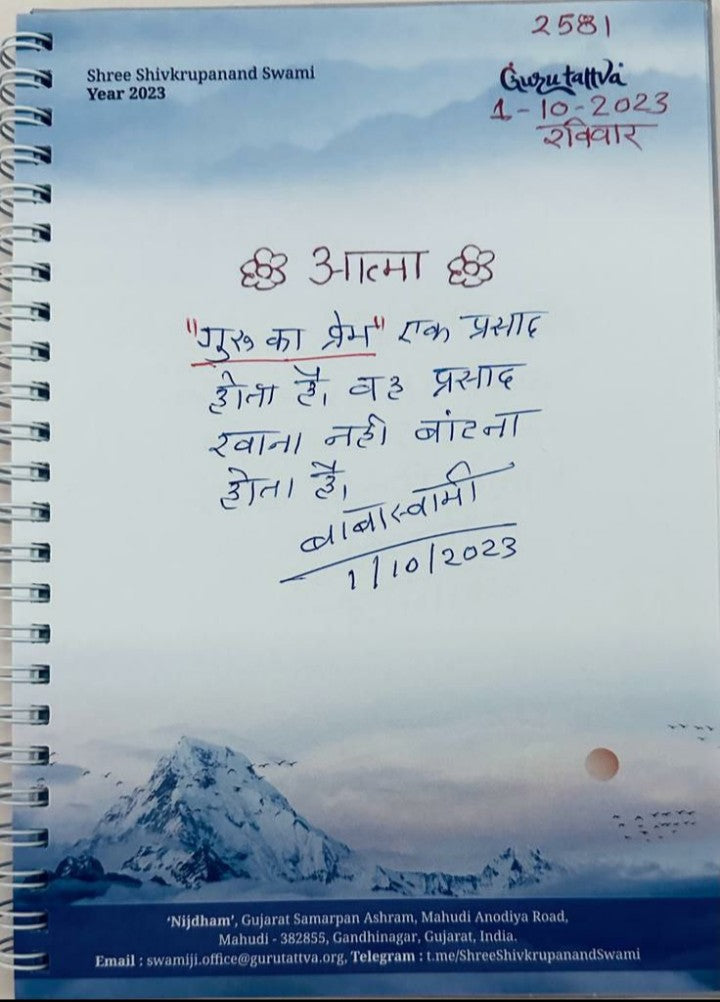 2581
Shree Shivkrupanand Swami
Year 2023
Gurutattva
1-10-2023
रविवार
आत्मा
"गुरु का प्रेम" एक प्रसाद
होता है, वह प्रसाद
खाना नही बांटना
होता है,
बाबास्वामी
1/10/2023
'Nijdham', Gujarat Samarpan Ashram, Mahudi Anodiya Road,
Mahudi - 382855, Gandhinagar, Gujarat, India.
Email : swamiji.office@gurutattva.org, Telegram : t.me/ShreeShivkrupanandSwami